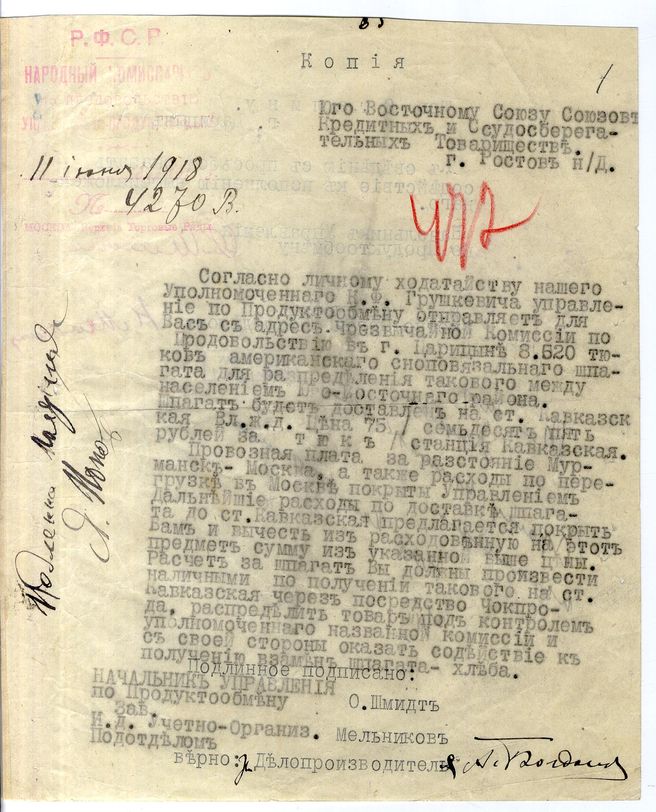 Р.Ф.С.Р.
НАРОДНЫЙ КОМИССАРІАТЪ
Копія
Юго Восточному Союзу Союзовъ
Кредитныхъ и Ссудосберега-
тельныхъ Товариществъ.
г. Ростовъ н/Д.
11 іюня 1918
№ 4270 В.
Согласно личному ходатайству нашего
Уполномоченнаго К.Ф. Грушкевича управле-
ніе по Продуктообмѣну отправляетъ для
Васъ съ адресъ Чрезвычайной Комиссіи по
Продовольствію въ г. Царицынѣ 8.520 тю-
ковъ американскаго сноповязальнаго шпа-
гата для распредѣленія такового между
населеніемъ Юго-Восточнаго района.
Шпагатъ будетъ доставленъ на ст. Кавказск
кая Вл.ж.д. Цѣна 75 / семьдесятъ пять
рублей за тюкъ / станція Кавказская.
Провозная плата за разстояніе Мур-
манскъ- Москва, а также расходы по пере-
грузкѣ въ Москвѣ покрыты Управленіемъ
Дальнѣйшіе расходы по доставкѣ шпага-
та до ст.Кавказская предлагается покрыть
Вамъ и вычесть изъ расходовѣнную на этотъ
предметъ сумму изъ указанной выше цѣны.
Расчетъ за шпагатъ Вы должны произвести
наличными по полученіи такового на ст.
Кавказская черезъ посредство Чокпро-
да, распредѣлить товаръ подъ контролемъ
уполномоченнаго названной комиссіи и
съ своей стороны оказать содѣйствіе къ
полученію взамѣнъ шпагата- хлѣба.
Подлинное подписано:
НАЧАЛЬНИКЪ УПРАВЛЕНІЯ
по Продуктообмѣну О.Шмидтъ
Зав.
И.д. Учетно-Организ. Мельниковъ
Подотдѣломъ
вѣрно: Дѣлопроизводитель